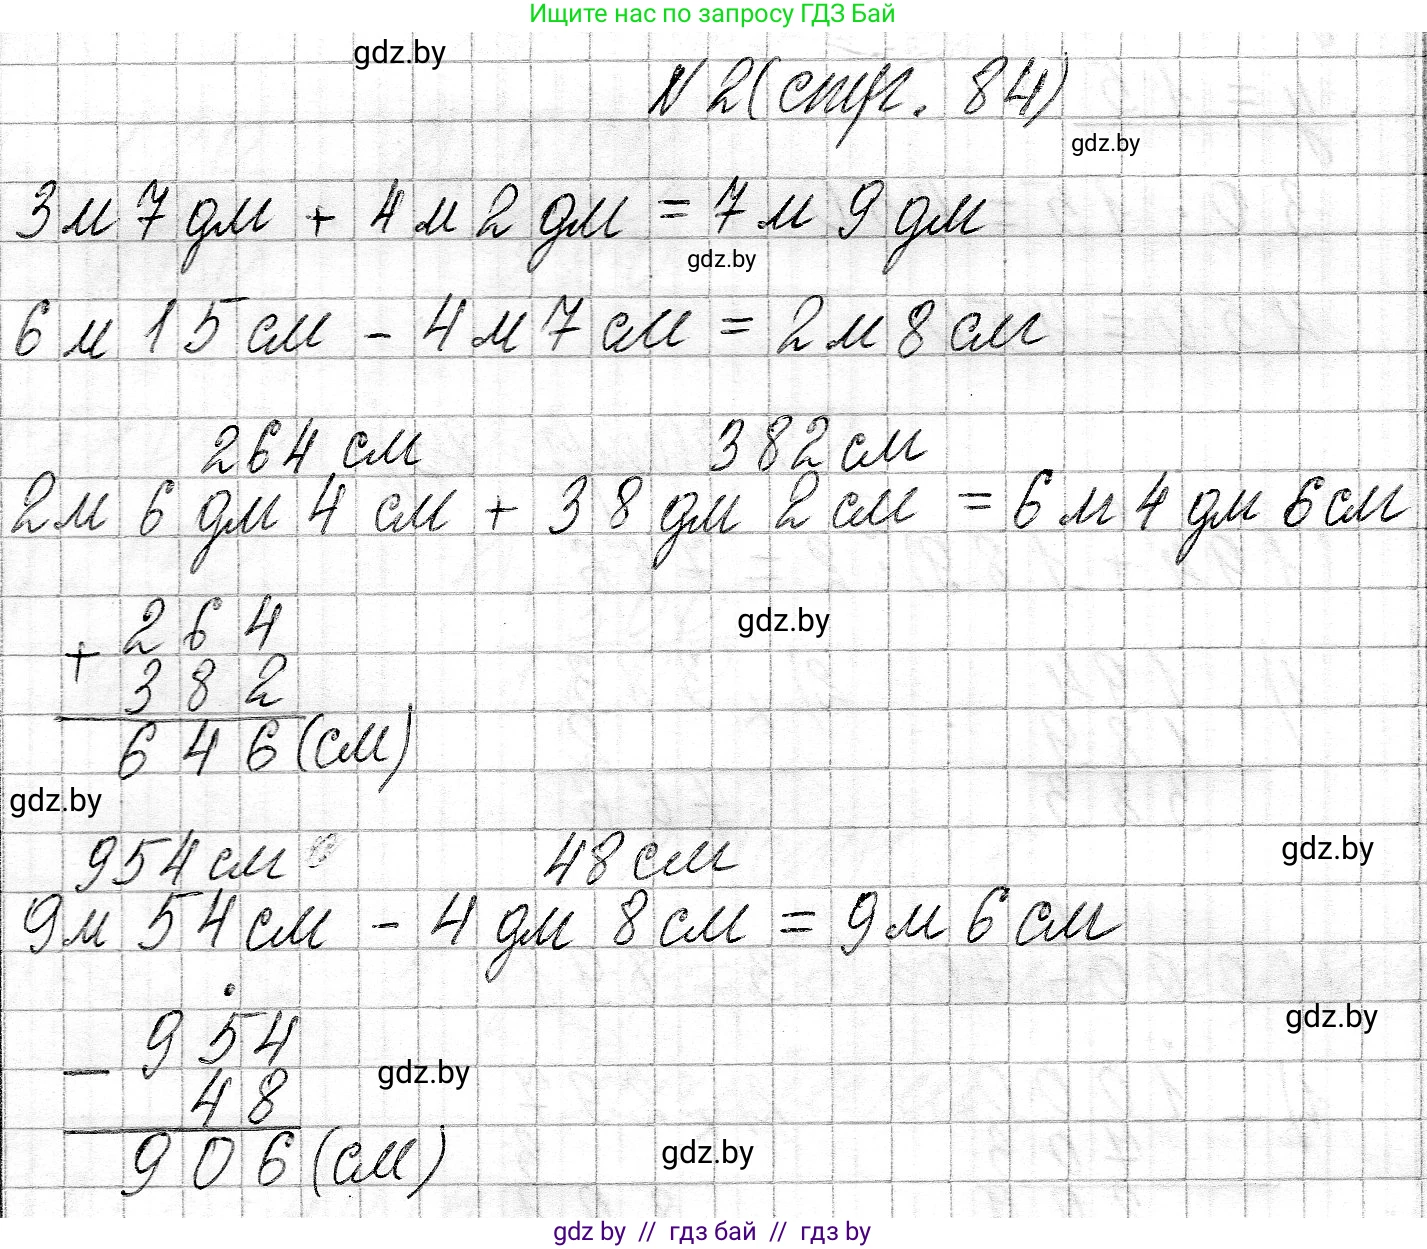 Ищите нас по запросу ГДЗ Бай
gdz.by
N 2 (стр. 84)
gdz.by
3 м 7 дм + 4 м 2 дм = 7 м 9 дм
gdz.by
6 м 15 см - 4 м 7 см = 2 м 8 см
264 см 382 см
2 м 6 дм 4 см + 38 дм 2 см = 6 м 4 дм 6 см
264
gdz.by
+
382
646 (см)
gdz.by
954 см 48 см
gdz.by
9 м 54 см - 4 дм 8 см = 9 м 6 см
954
gdz.by
-
gdz.by
48
906 (см)
gdz.by
gdz by // гдз бай // гдз by